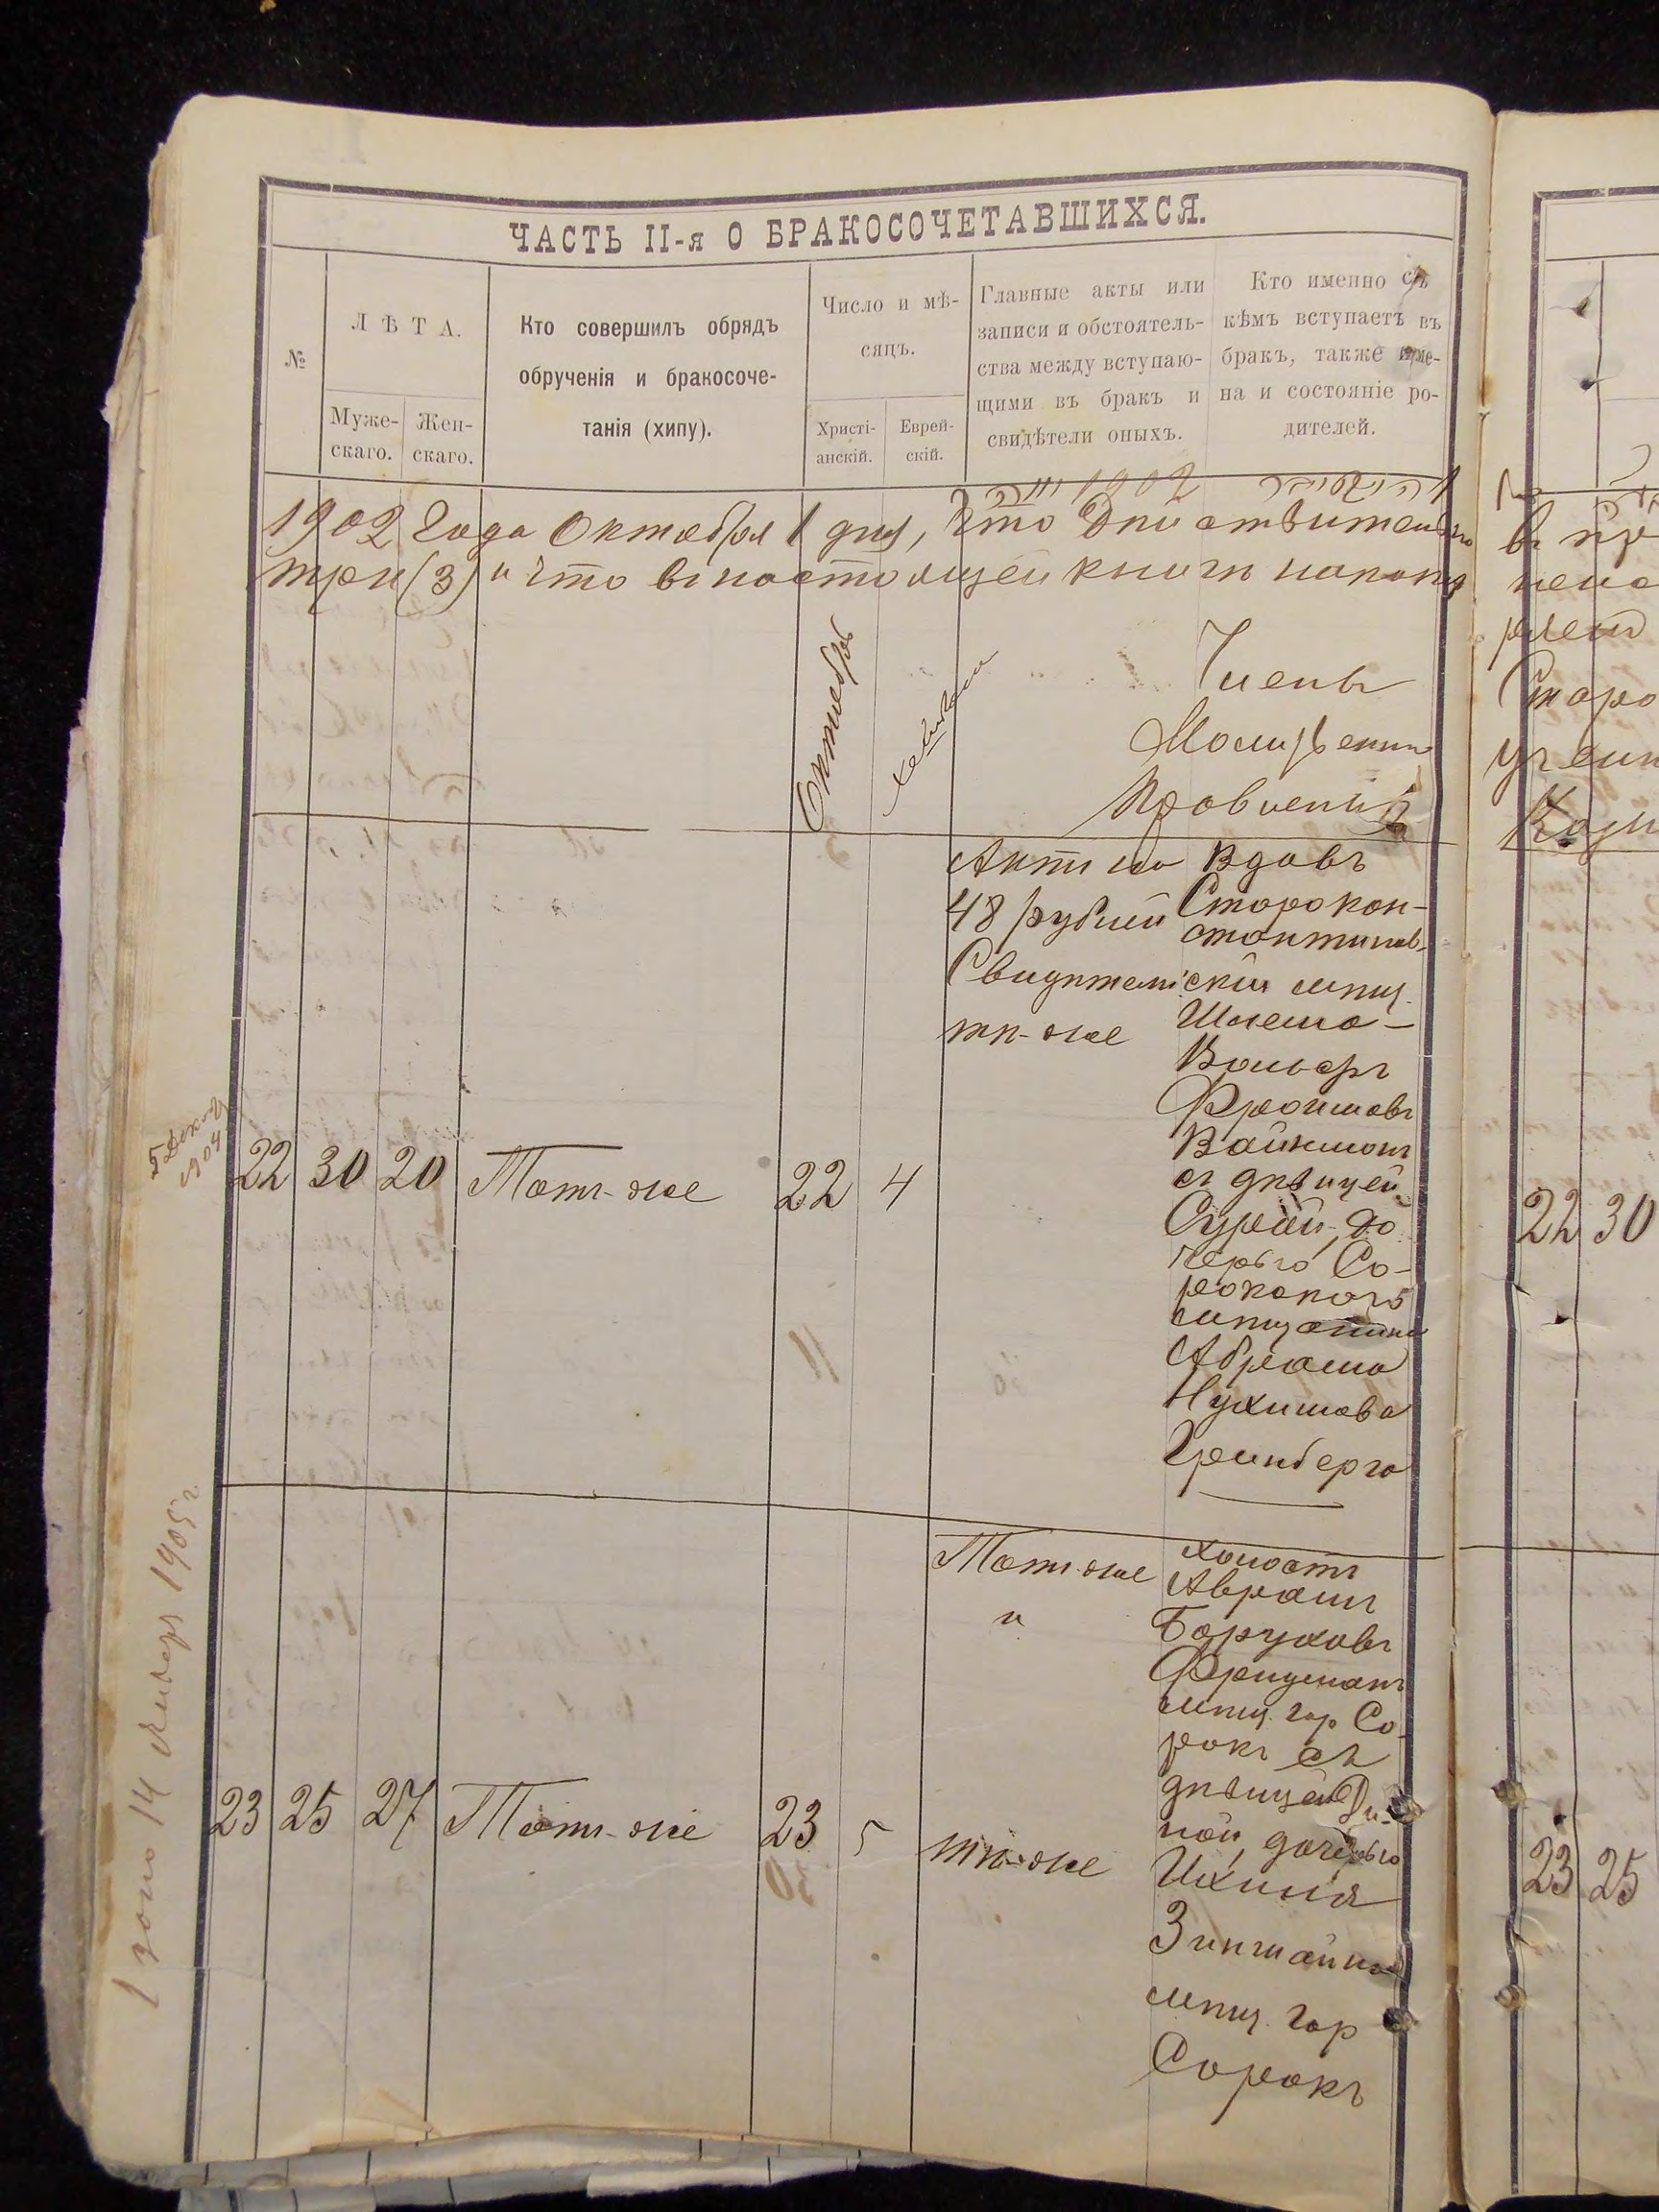 ЧАСТЬ II-я О БРАКОСОЧЕТАВШИХСЯ.
№
ЛѢТА.
Муже-
скаго.
Жен-
скаго.
Кто совершилъ обрядъ
обрученія и бракосоче-
танія (хипу).
Число и мѣ-
сяцъ.
Христі-
анскій.
Еврей-
скій.
Главные акты или
записи и обстоятель-
ства между вступаю-
щими въ бракъ и
свидѣтели оныхъ.
Кто именно съ
кѣмъ вступаетъ въ
бракъ, также име-
на и состояніе ро-
дителей.
1902 Года Октября 1 дня, что Дѣйствительно
три (3) и что въ настоящей книгѣ
Октябрь
Члены
Правленія
Актъ на
48 рублей
Свидѣтели
тѣ-же
Вдовъ
Старокон-
стантинов-
скій мѣщ.
Шлема-
Вольфъ
Фроимовъ
Вайнманъ
съ дѣвицей
Сурой, до
черью Со-
рокскаго
мѣщанина
Абрама
Нухимова
Гринберга
22 30 20 Тотъ-же 22 4
Тотъ-же
и
тѣ-же
холостъ
Авраамъ
Боруховъ
Фридманъ
мѣщ. гор. Со-
рокъ съ
дѣвицей Ди-
ной, дочерью
Ихиля
мѣщ. гор
Сорокъ
23 25 27 Тотъ-же 23 5
1904
14 Января 1905 г
22 30
23 25